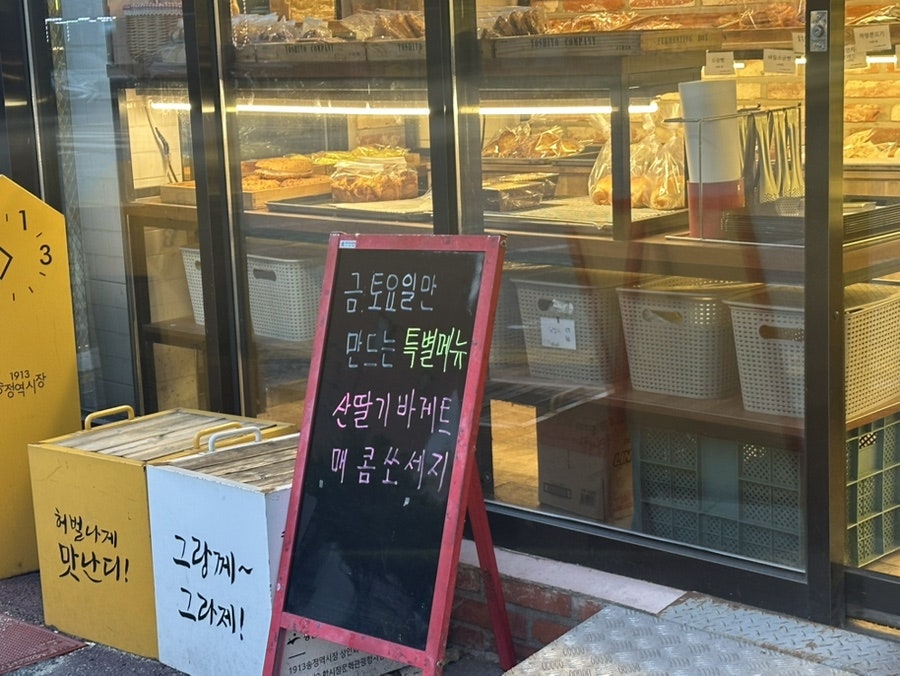 YOSHITO COMPANY
YOSHITO COMPANY
FERMENTING BOX
1
3
1913
송정역시장
금.토요일만
만드는 특별메뉴
산딸기 바게트
매콤쏘세지
허벌나게
맛난디!
그랑께~
그라제!
1913송정역시장 상인회